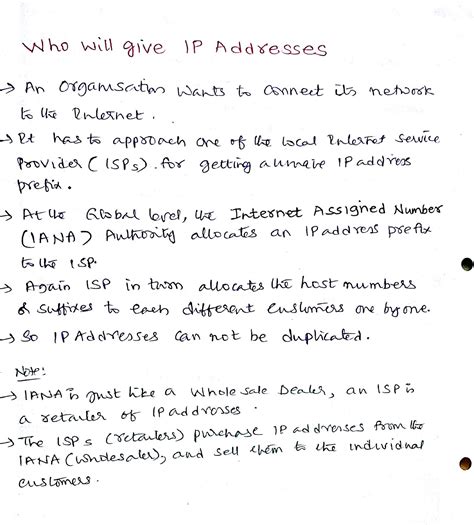 Who will give IP Addresses
→ An Organisation wants to connect its network
to the Internet.
→ It has to approach one of the local Internet Service
Provider (ISPs). for getting a unique IP address
prefix.
→ At the Global level, the Internet Assigned Number
(IANA) Authority allocates an IP address prefix
to the ISP.
→ Again ISP in turn allocates the host numbers
of suffixes to each different customers one by one.
→ So IP Addresses can not be duplicated.
Note:
→ IANA is just like a whole sale Dealer, an ISP is
a retailer of IP addresses.
→ The ISPs (retailers) purchase IP addresses from the
IANA (wholesaler), and sell them to the individual
customers.